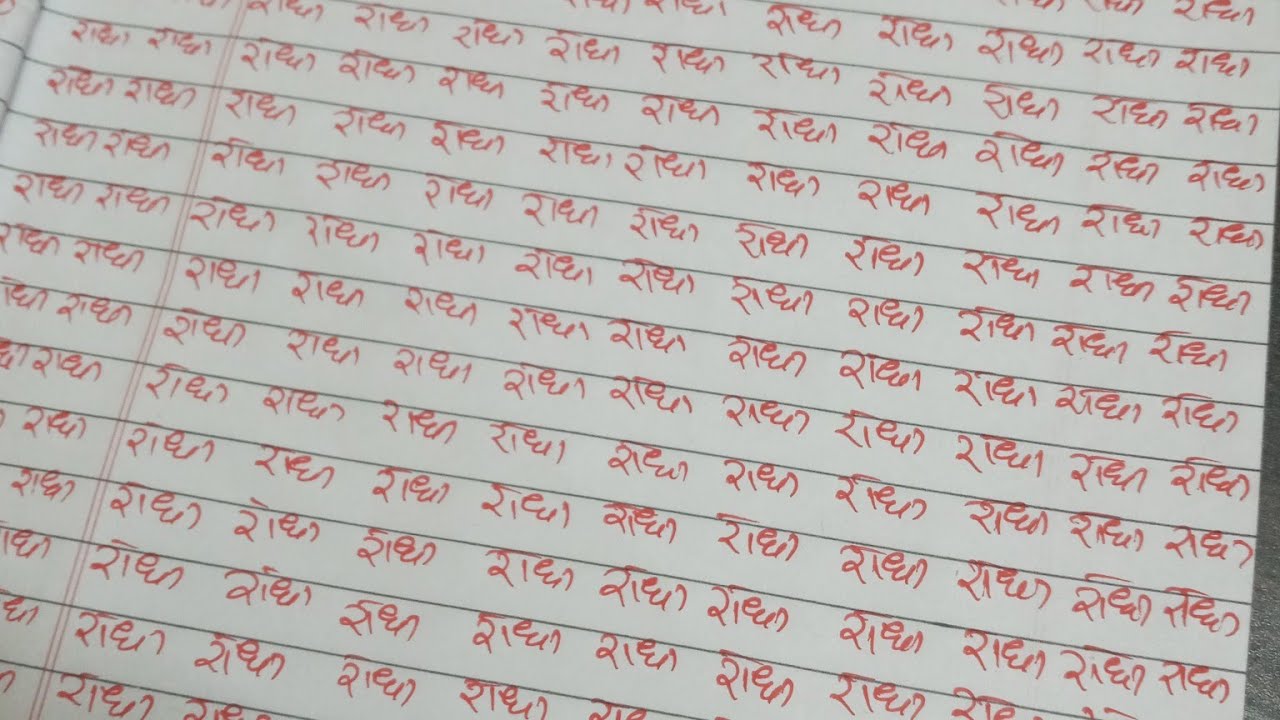 राधा राधा
राधा राधा राधा राधा राधा राधा
राधा राधा राधा राधा राधा राधा राधा राधा राधा राधा
राधा राधा राधा राधा राधा राधा राधा राधा राधा राधा राधा राधा
राधा राधा राधा राधा राधा राधा राधा राधा राधा राधा राधा राधा
राधा राधा राधा राधा राधा राधा राधा राधा राधा राधा राधा राधा
राधा राधा राधा राधा राधा राधा राधा राधा राधा राधा राधा राधा
राधा राधा राधा राधा राधा राधा राधा राधा राधा राधा राधा राधा
राधा राधा राधा राधा राधा राधा राधा राधा राधा राधा राधा राधा
राधा राधा राधा राधा राधा राधा राधा राधा राधा राधा राधा
राधा राधा राधा राधा राधा राधा राधा राधा राधा राधा राधा
राधा राधा राधा राधा राधा राधा राधा राधा राधा राधा राधा
राधा राधा राधा राधा राधा राधा राधा
राधा राधा राधा राधा
राधा